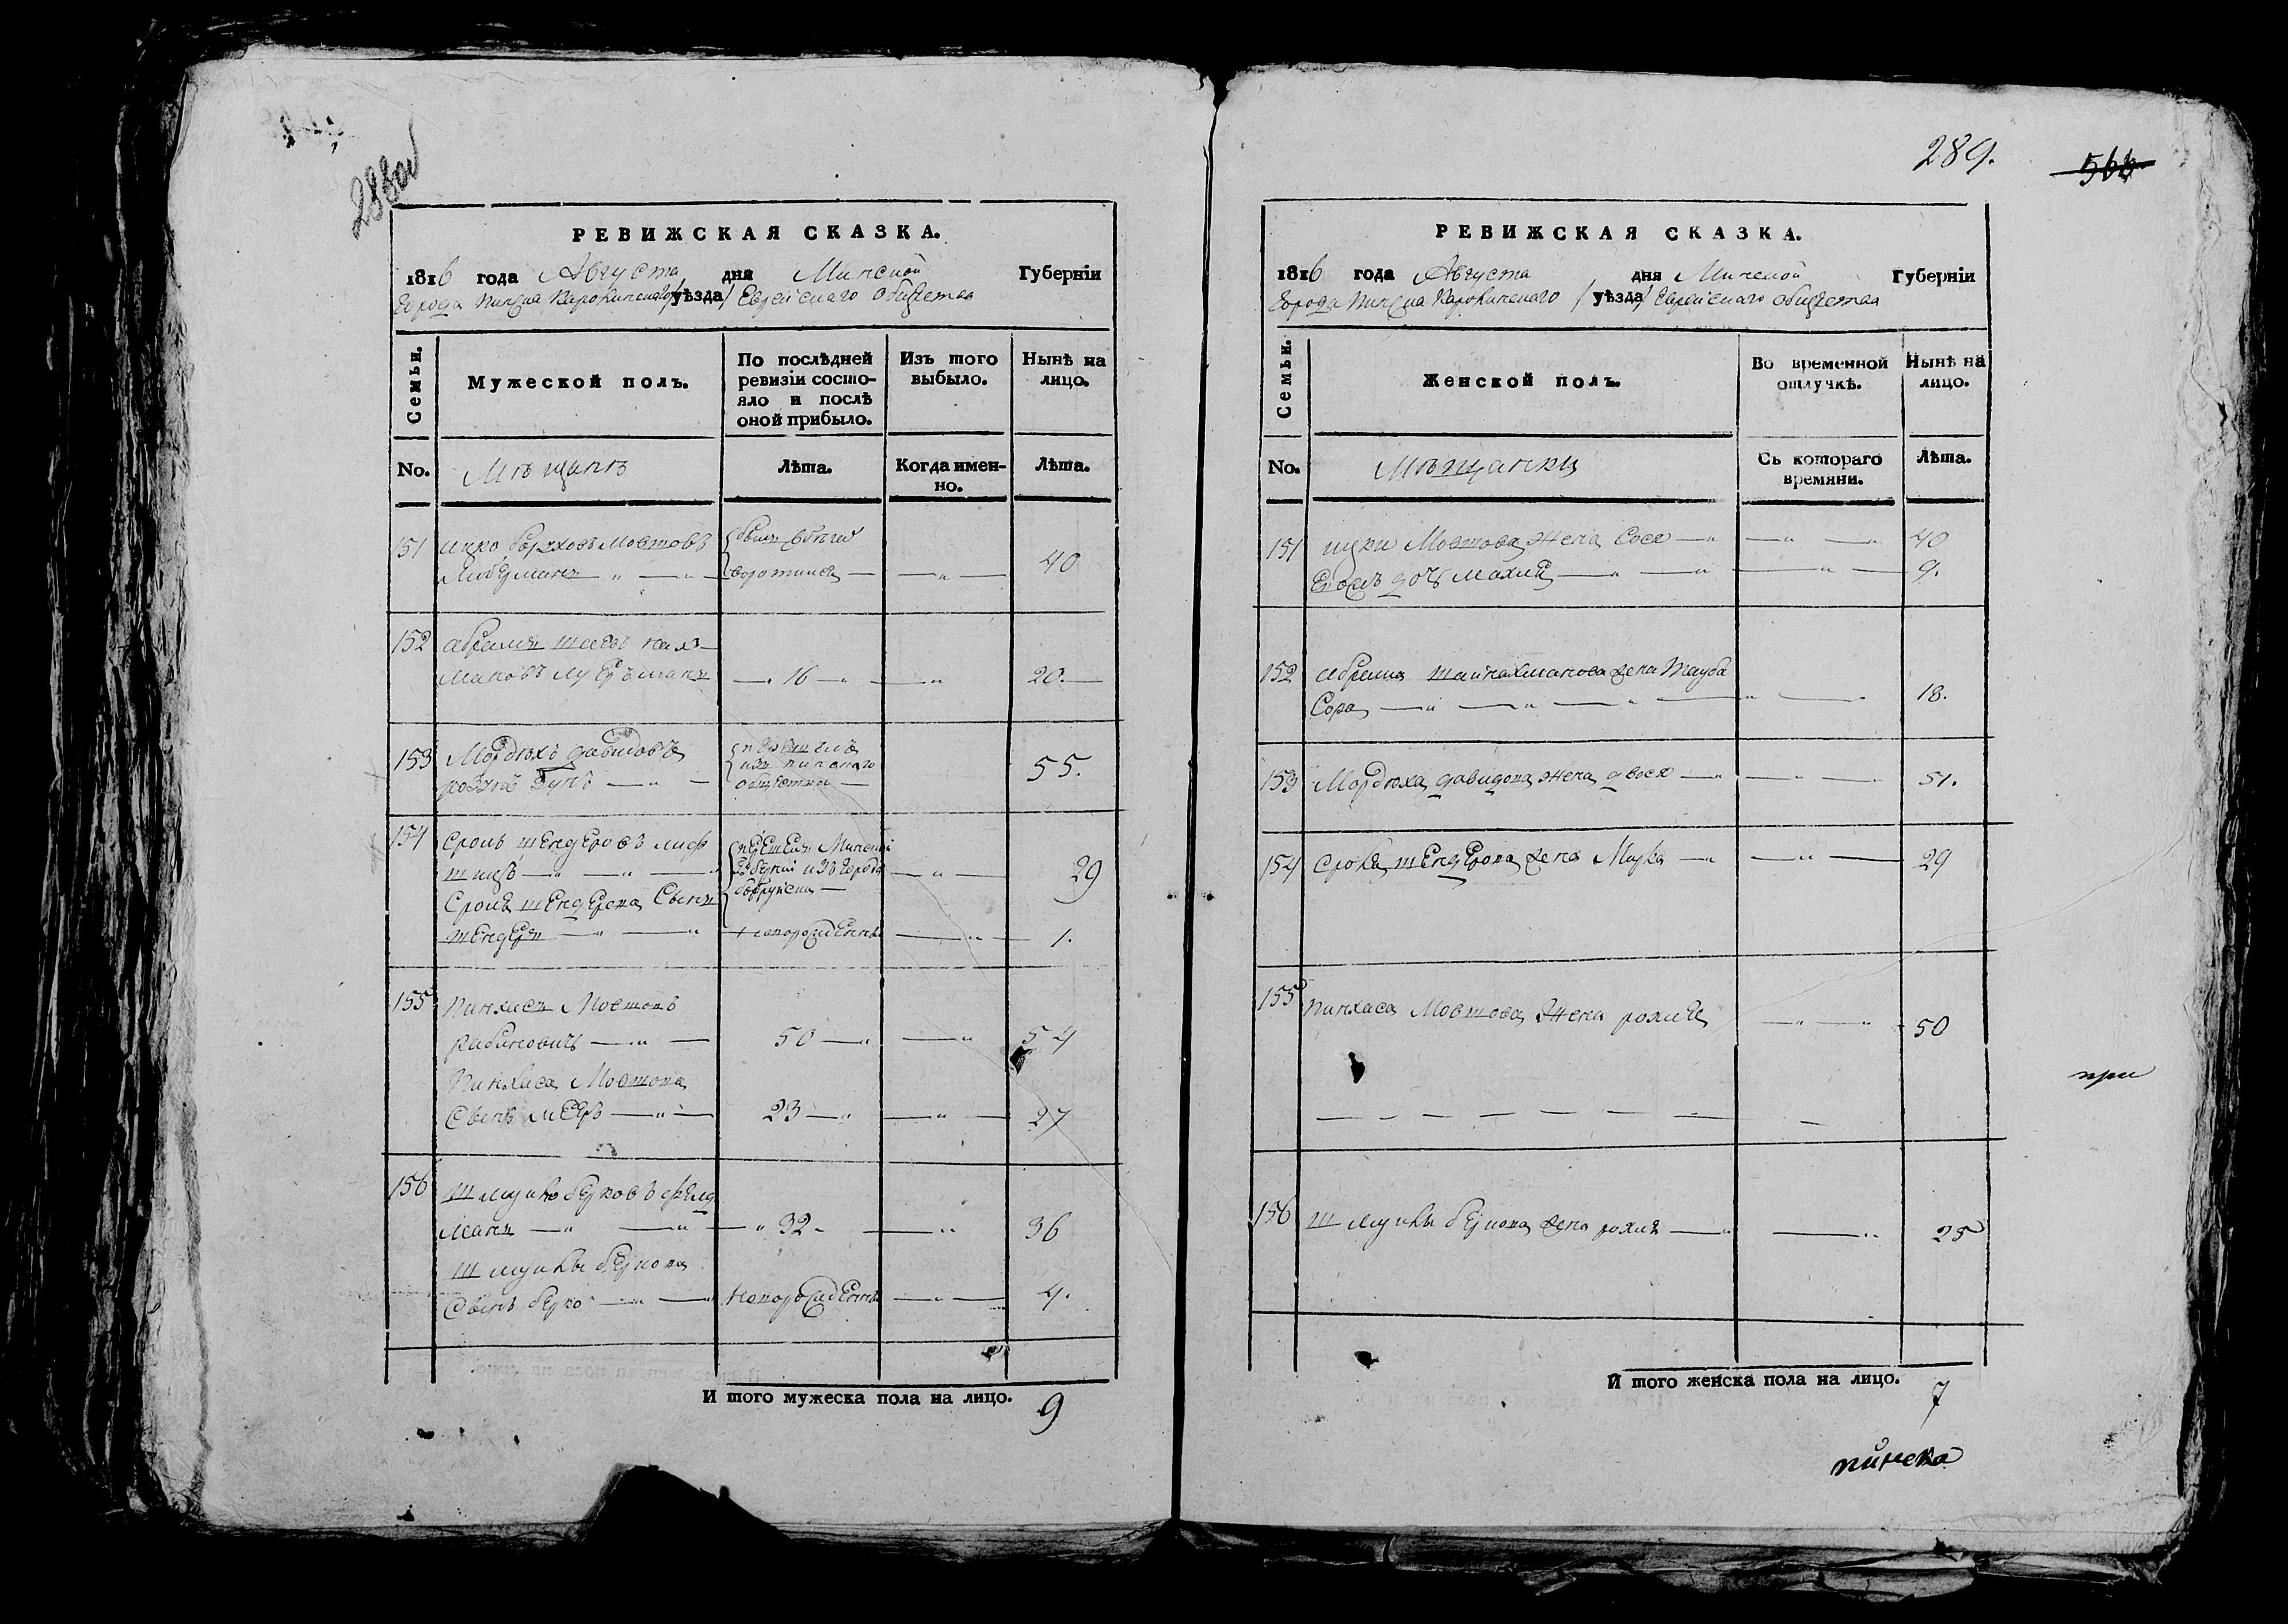 288об
РЕВИЖСКАЯ СКАЗКА.
1816 года Августа дня Минской Губерніи
Города Пинска Каролинскаго /уѣзда/ Еврейскаго общества
Семьи. Мужеской полъ. По послѣдней ревизіи состояло и послѣ оной прибыло. Изъ того выбыло. Нынѣ на лицо.
No. Мѣщанѣ Лѣта. Когда именно. Лѣта.
151 Ицко Мовшовъ
Либерманъ 40
152 абрамъ шаевъ нах
мановъ 16 20.
153 Мордюхъ давидовъ из пинскаго 55.
общества
154 Сроль шендеровъ лиф
шицъ Минской Губерніи изъ города 29
Сроля шендерова Сынъ
шендеръ новорожденны 1.
155 Пинхасъ Мовшовъ
рабиновичъ 50 54
Пинхаса Мовшова
Сынъ мееръ 23 27
156 шмуйло берковъ фелд
манъ 32 36
шмуйлы беркова
Сынъ берко новорожденны 4.
И того мужеска пола на лицо. 9
289.
566
РЕВИЖСКАЯ СКАЗКА.
1816 года Августа дня Минской Губерніи
Города Пинска Каролинскаго /уѣзда/ Еврейскаго общества
Семьи. Женской полъ. Во временной отлучкѣ. Нынѣ на лицо.
No. Мѣщанки Съ котораго времяни. Лѣта.
151 ицки Мовшова жена Сося 40
дочь малия 9.
152 абрама жена Тауба
Сора 18.
153 Мордюха давидова жена двося 51.
154 Сроля шендерова жена Мука 29
155 Пинхаса Мовшова жена рохля 50
при
156 шмуйлы беркова жена рохля 25
И того женска пола на лицо. 7
пинска